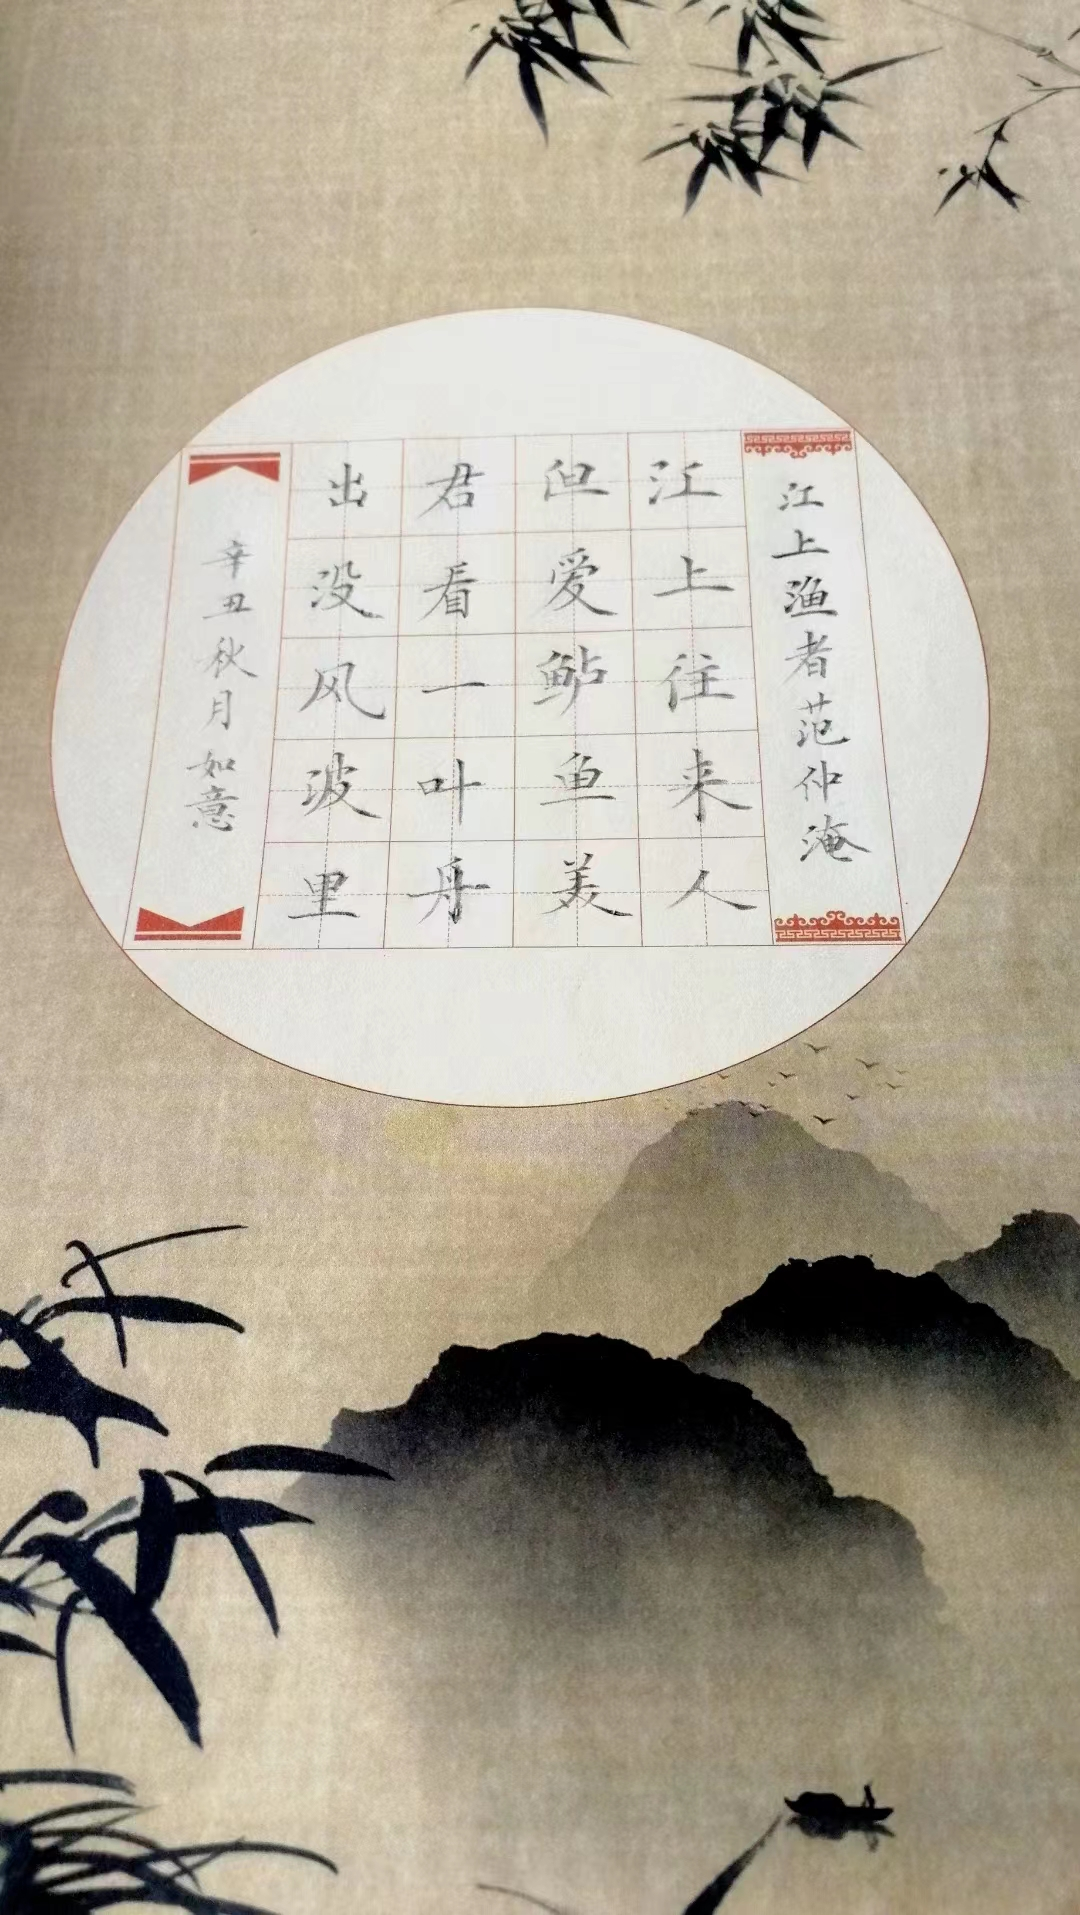 江上渔者范仲淹
江上往来人
但爱鲈鱼美
君看一叶舟
出没风波里
辛丑秋月如意